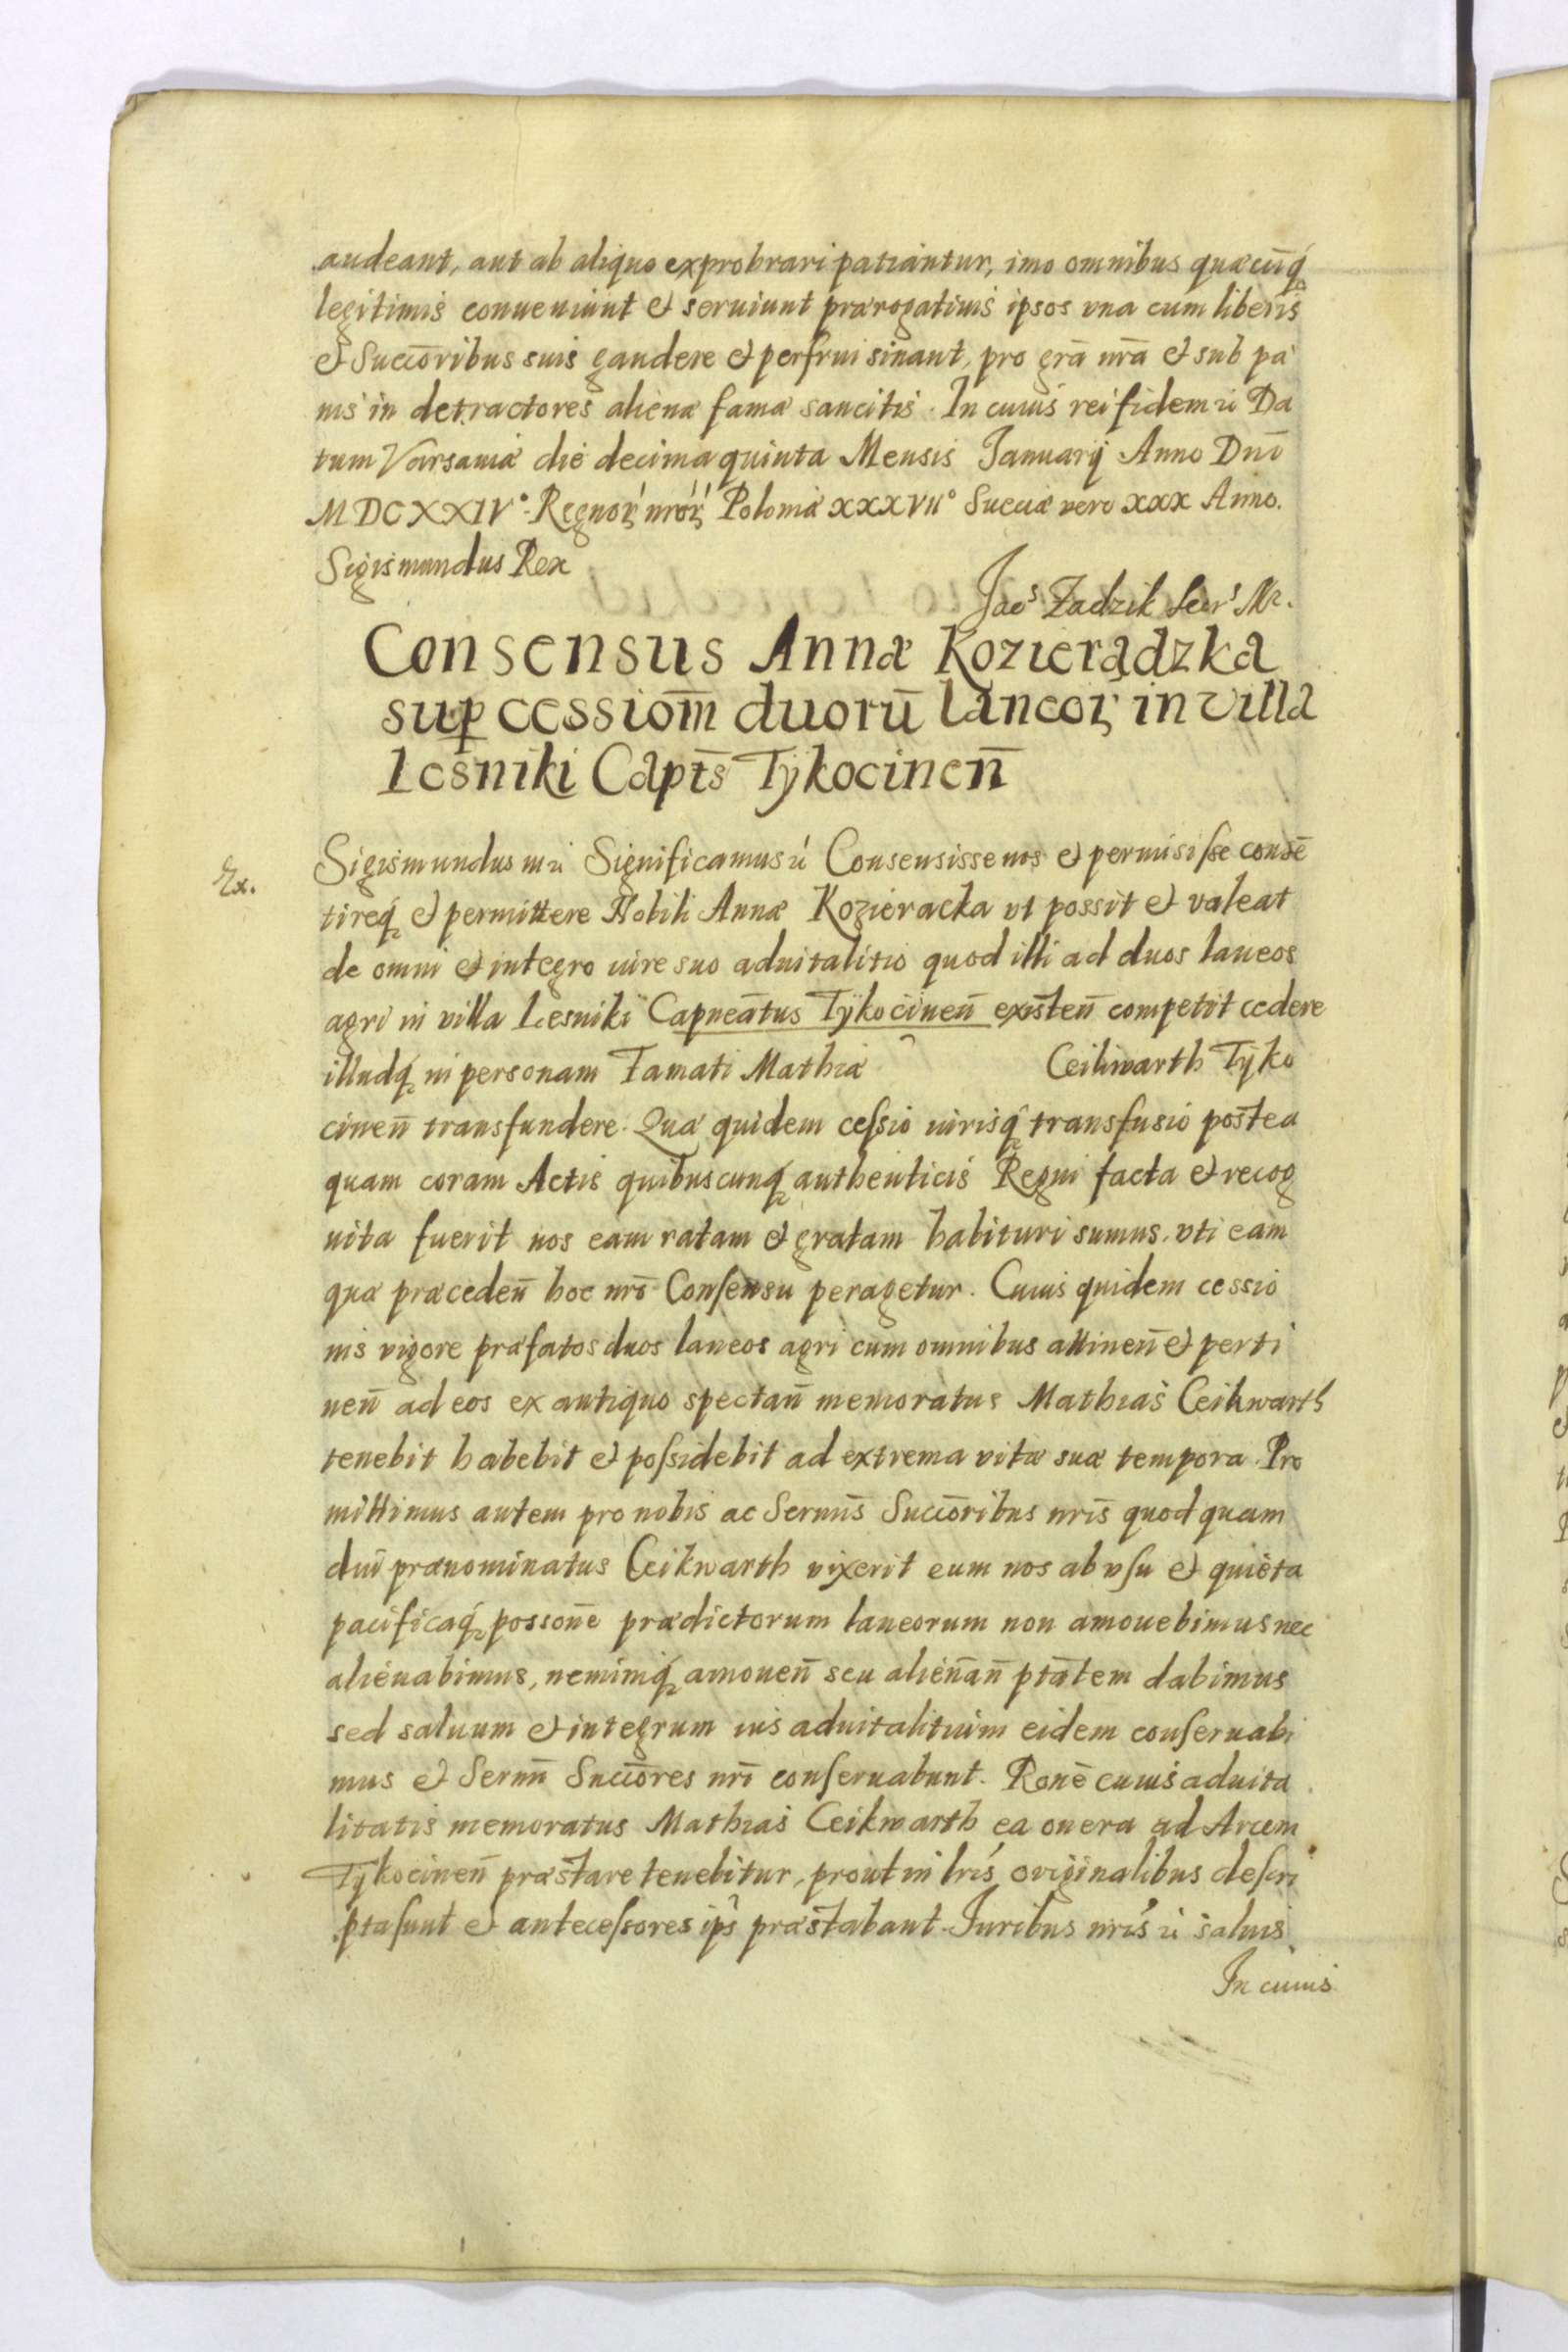 audeant, aut ab aliquo exprobrari patiantur, imo omnibus quæcūq́
legitimis conueniunt et seruiunt prærogatiuis ipsos vna cum liberis
et Succōribus suis gaudere et perfrui sinant, pro grā nrā et sub pæ
nis in detractores alienæ famæ sancitis. In cuius rei fidem ꝛc Da
tum Varsauiæ die decima quinta Mensis Januarij Anno Dnī
MDCXXIV°. Regnoꝝ nroꝝ Poloniæ XXXVII° Sueciæ vero XXX Anno.
Sigismundus Rex
Jacˢ Zadzik Secrˢ Mʳ.
Consensus Annæ Kozierądzka
suꝑ cessioñm duorū laneoꝝ in villa
Lesniki Capts̄ Tÿkocineñ
Rx.
Sigismundus ꝛc Significamus ꝛc Consensisse nos et permisisse consē
tireq́ et permittere Nobili Annæ Kozieracka vt possit et valeat
de omni et integro iure suo aduitalitio quod illi ad duos laneos
agri in villa Lesniki Capneātus Tÿkocineñ existeñ competit cedere
illudq́ in personam Famati Mathiæ Ceikwarth Tÿko
cineñ transfundere. Quæ quidem cessio iurisq́ transfusio postea
quam coram Actis quibuscunq́ authenticis Regni facta et recog
nita fuerit nos eam ratam et gratam habituri sumus. vti eam
quæ præcedeñ hoc nrō Consensu peragetur. Cuius quidem cessio
nis vigore præfatos duos laneos agri cum omnibus attineñ et perti
neñ ad eos ex antiquo spectañ memoratus Mathias Ceikwarth
tenebit habebit et possidebit ad extrema vitæ suæ tempora. Pro
mittimus autem pro nobis ac Sermis̄ Succōribus nris̄ quod quam
diu prænominatus Ceikwarth vixerit eum nos ab vsu et quieta
pacificaq́ possone̅ prædictorum laneorum non amouebimus nec
alienabimus, neminiq́ amoueñ seu alienāñ ptātem dabimus
sed saluum et integrum ius aduitalitium eidem conseruabi
mus et Sermī Succōres nrī conseruabunt. Ronē cuius aduita
litatis memoratus Mathias Ceikwarth ea onera ad Arcem
Tÿkocineñ præstare tenebitur, prout in lris̄ originalibus descri
pta sunt et antecessores ips̄ præstabant. Juribus nris̄ ꝛc saluis
In cuius